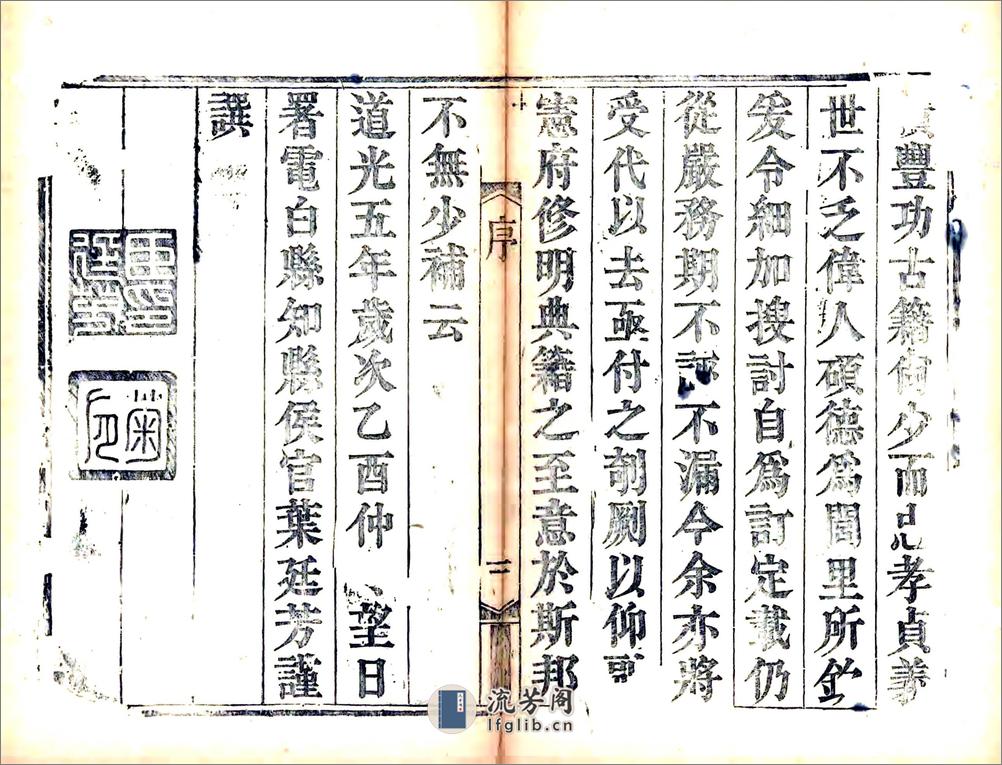 豐功古籍少而孝貞義
世不乏偉人碩德爲閭里所
爰令細加搜討自爲訂定載仍
從嚴務期不不漏今余亦將
受代以去亟付之剞劂以仰
憲府修明典籍之至意於斯邦
序 三
不無少補云
道光五年歲次乙酉仲望日
署電白縣知縣侯官葉廷芳謹
譔
流芳阁
lfglib.cn